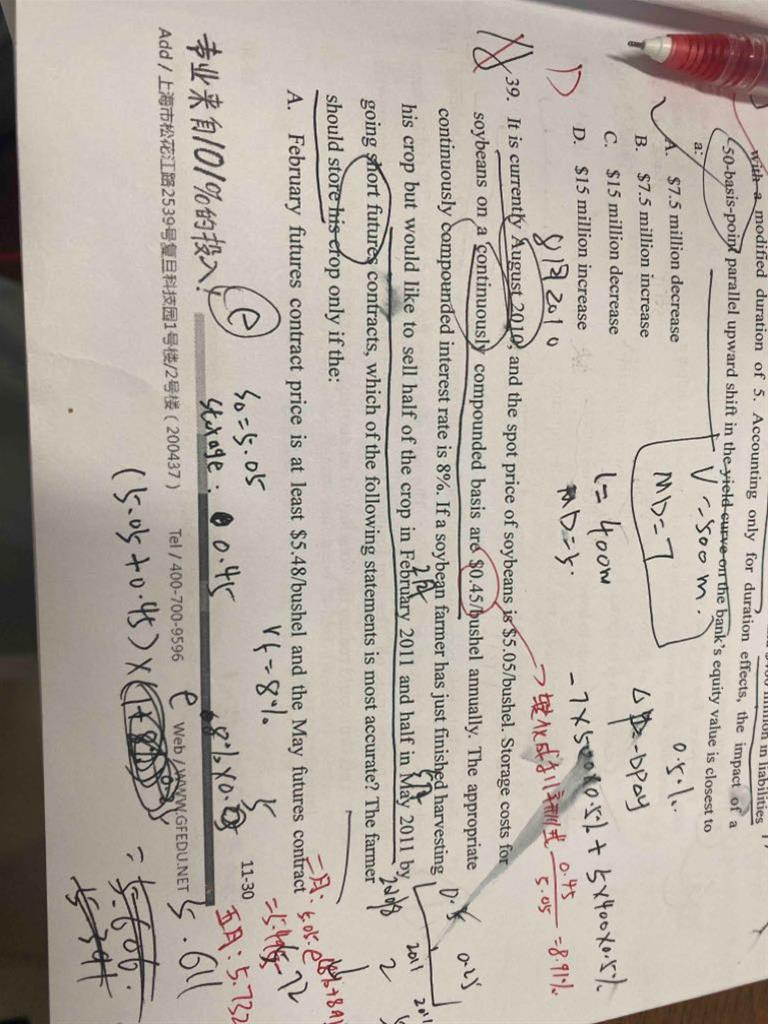 with a modified duration of 5. Accounting only for duration effects, the impact of a
50-basis-point parallel upward shift in the yield curve on the bank's equity value is closest to
a:
A. $7.5 million decrease
B. $7.5 million increase
C. $15 million decrease
D. $15 million increase
V=500 m.
MD=7
L=400w
MD=5.
0.5%
-7×500×0.5% + 5×400×0.5%
D
8月 2010
39. It is currently August 2010, and the spot price of soybeans is $5.05/bushel. Storage costs for
soybeans on a continuously compounded basis are $0.45/bushel annually. The appropriate
continuously compounded interest rate is 8%. If a soybean farmer has just finished harvesting
his crop but would like to sell half of the crop in February 2011 and half in May 2011 by
going short futures contracts, which of the following statements is most accurate? The farmer
should store his crop only if the:
A. February futures contract price is at least $5.48/bushel and the May futures contract
0.45
5.05
=8.91%
2月
5月
0.5
0.25
2011
2
2011
11-30
专业来自101%的投入!
Add / 上海市松花江路2539号复旦科技园1号楼/2号楼 ( 200437 ) Tel / 400-700-9596 Web / WWW.GFEDU.NET
e
S0=5.05
storage: 0.45
rf=8%
(5.05+0.45)×
e
5.611
五月: 5.732